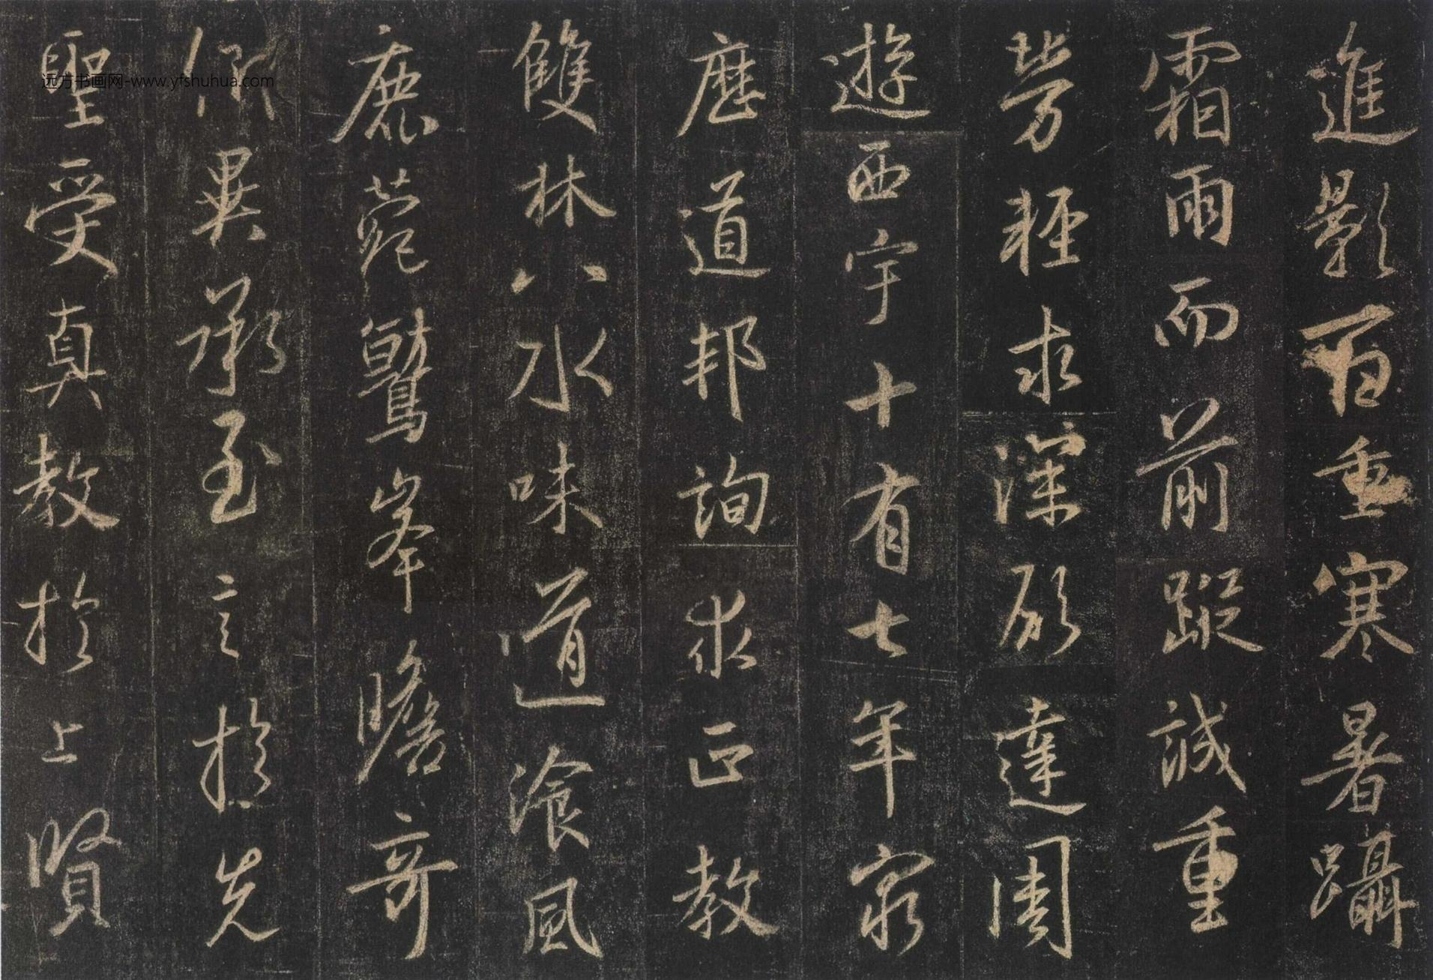 進影百重寒暑躡
霜雨而前蹤誠重
勞輕求深願達周
遊西宇十有七年窮
歷道邦詢求正教
雙林八水味道飡風
鹿菀鷲峯瞻奇
仰異承至言於先
聖受真教於上賢
远方书画网-www.yfshuhua.com